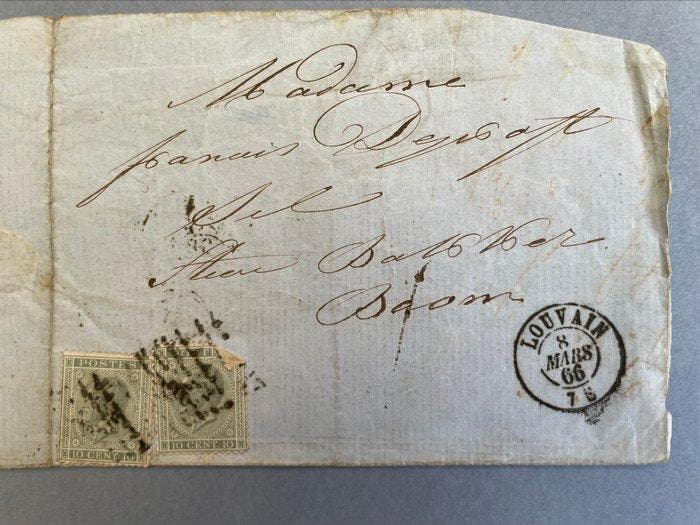 Madame
francis Deprost
Sel
Steen Bakker
Boom
LOUVAIN
8
MARS
66
7 S
POSTES
10 CENT. 10
10 CENT. 10